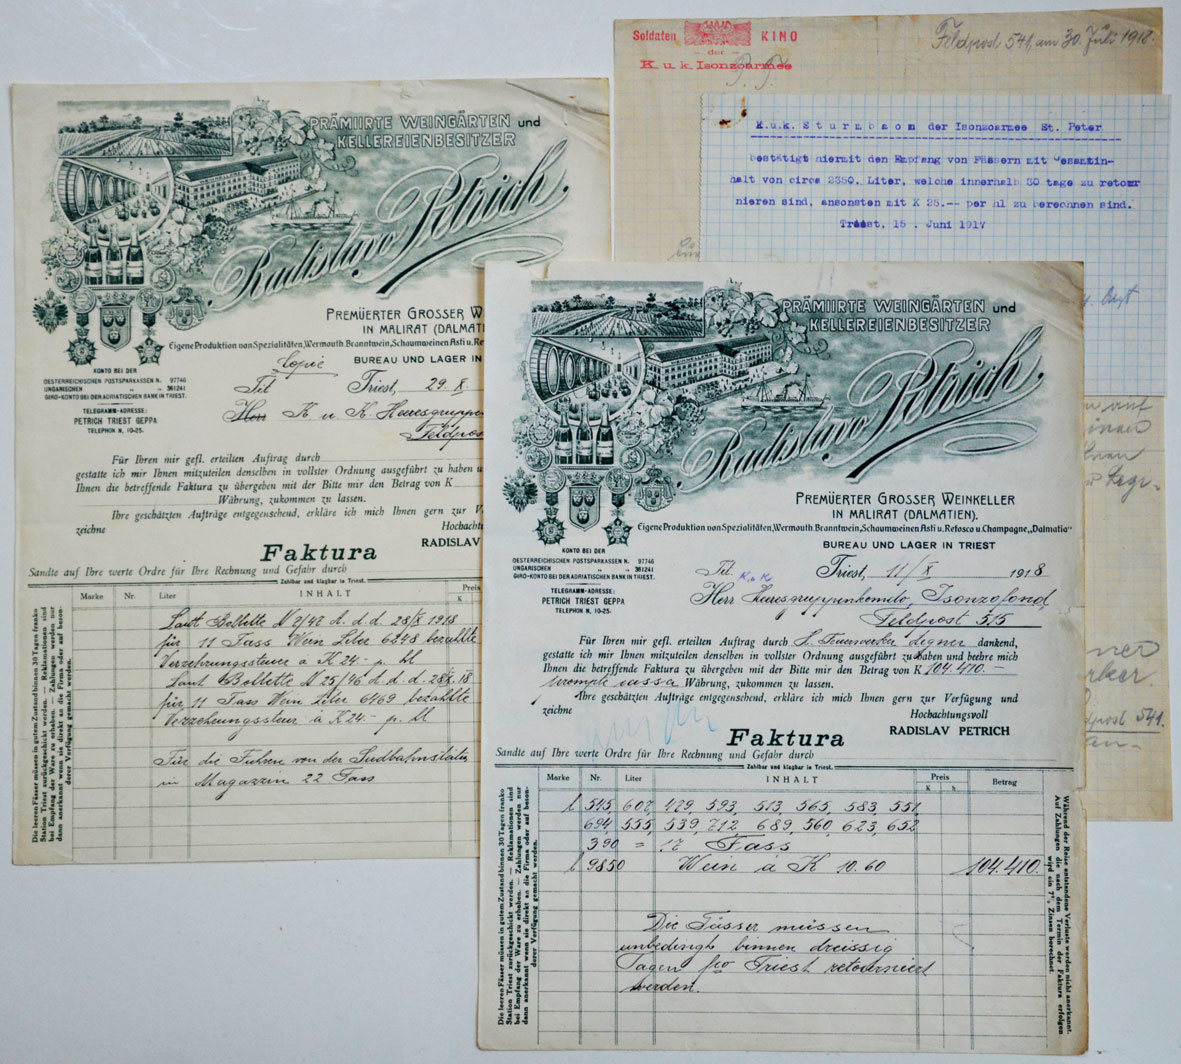 PRÄMIIRTE WEINGÄRTEN und
KELLEREIENBESITZER
Radislavo Petrich
PREMÜERTER GROSSER
IN MALIRAT (DALMATI
Eigene Produktion von Spezialitäten, Wermouth, Branntwein, Schaumweinen Asti u.
BUREAU UND LAGER IN
KONTO BEI DER
OESTERREICHISCHEN POSTSPARKASSEN N. 97746
UNGARISCHEN " " 361241
GIRO-KONTO BEI DER ADRIATISCHEN BANK IN TRIEST.
TELEGRAMM-ADRESSE:
PETRICH TRIEST GEPPA
TELEPHON N. 10-25.
Copie
Tit
Triest, 29. X.
Herr K u. K. Heeresgruppen
Feldpost
Für Ihren mir gefl. erteilten Auftrag durch
gestatte ich mir Ihnen mitzuteilen denselben in vollster Ordnung ausgeführt zu haben
Ihnen die betreffende Faktura zu übergeben mit der Bitte mir den Betrag von K
Währung, zukommen zu lassen.
Ihre geschätzten Aufträge entgegensehend, erkläre ich mich Ihnen gern zur
zeichne
Hochacht
RADISLAV
Faktura
Sandte auf Ihre werte Ordre für Ihre Rechnung und Gefahr durch
Zahlbar und klagbar in Triest.
Marke Nr. Liter INHALT Preis
K
Laut Bollette N 2/42 d. d. d. 28/X 1918
für 11 Fass Wein Liter 6248 bezahlte
Verzehrungssteuer a K 24 - p. hl
Laut Bollette N 25/46 d. d. d. 28.X.18
für 11 Fass Wein Liter 6469 bezahlte
Verzehrungssteur à K 24 - p. hl
Für die Fuhren von der Südbahnstation
in Magazzin 22 Fass
Die leeren Fässer müssen in gutem Zustand binnen 30 Tagen franko
Station Triest zurückgeschickt werden. — Reklamationen sind
bei Empfang der Ware zu erheben. — Zahlungen werden nur
dann anerkannt wenn sie direkt an die Firma oder auf beson-
derer Verfügung gemacht werden.
Soldaten KINO
der
K. u. k. Isonzoarmee
Feldpost 541, am 30. Juli 1918.
K.u.k. Sturmbaon der Isonzoarmee St. Peter
bestätigt hiermit den Empfang von Fässern mit Gesamtin-
halt von circa 2350. Liter, welche innerhalb 30 tage zu retour
nieren sind, ansonsten mit K 25.-- per hl zu berechnen sind.
Triest, 15. Juni 1917
auf
Feldpost 541.
PRÄMIIRTE WEINGÄRTEN und
KELLEREIENBESITZER
Radislavo Petrich
PREMÜERTER GROSSER WEINKELLER
IN MALIRAT (DALMATIEN).
Eigene Produktion von Spezialitäten, Wermouth, Branntwein, Schaumweinen Asti u. Refosco u. Champagne „Dalmatia"
BUREAU UND LAGER IN TRIEST
KONTO BEI DER
OESTERREICHISCHEN POSTSPARKASSEN N. 97746
UNGARISCHEN " " 361241
GIRO-KONTO BEI DER ADRIATISCHEN BANK IN TRIEST.
TELEGRAMM-ADRESSE:
PETRICH TRIEST GEPPA
TELEPHON N. 10-25.
Tit. K. u. K
Triest, 11/X 1918
Herr Heeresgruppenkomdo, Isonzoland,
Feldpost 515
Für Ihren mir gefl. erteilten Auftrag durch H. Feuerwerker dankend,
gestatte ich mir Ihnen mitzuteilen denselben in vollster Ordnung ausgeführt zu haben und beehre mich
Ihnen die betreffende Faktura zu übergeben mit der Bitte mir den Betrag von K 104.410.-
prompte cassa Währung, zukommen zu lassen.
Ihre geschätzten Aufträge entgegensehend, erkläre ich mich Ihnen gern zur Verfügung und
zeichne
Hochachtungsvoll
RADISLAV PETRICH
Faktura
Sandte auf Ihre werte Ordre für Ihre Rechnung und Gefahr durch
Zahlbar und klagbar in Triest.
Marke Nr. Liter INHALT Preis Betrag
K h
l 545, 602, 479, 593, 513, 565, 583, 551,
694, 555, 539, 712, 689, 560, 623, 652
390 = 17 Fass
l 9850 Wein à K 10.60 104.410.
Die Fässer müssen
unbedingt binnen dreissig
Tagen fco Triest retourniert
werden.
Die leeren Fässer müssen in gutem Zustand binnen 30 Tagen franko
Station Triest zurückgeschickt werden. — Reklamationen sind
bei Empfang der Ware zu erheben. — Zahlungen werden nur
dann anerkannt wenn sie direkt an die Firma oder auf beson-
derer Verfügung gemacht werden.
Während der Reise entstandene Verluste werden nicht anerkannt.
Auf Zahlungen die nach dem Termin der Faktura erfolgen
wird ein 7% Zinsen berechnet.